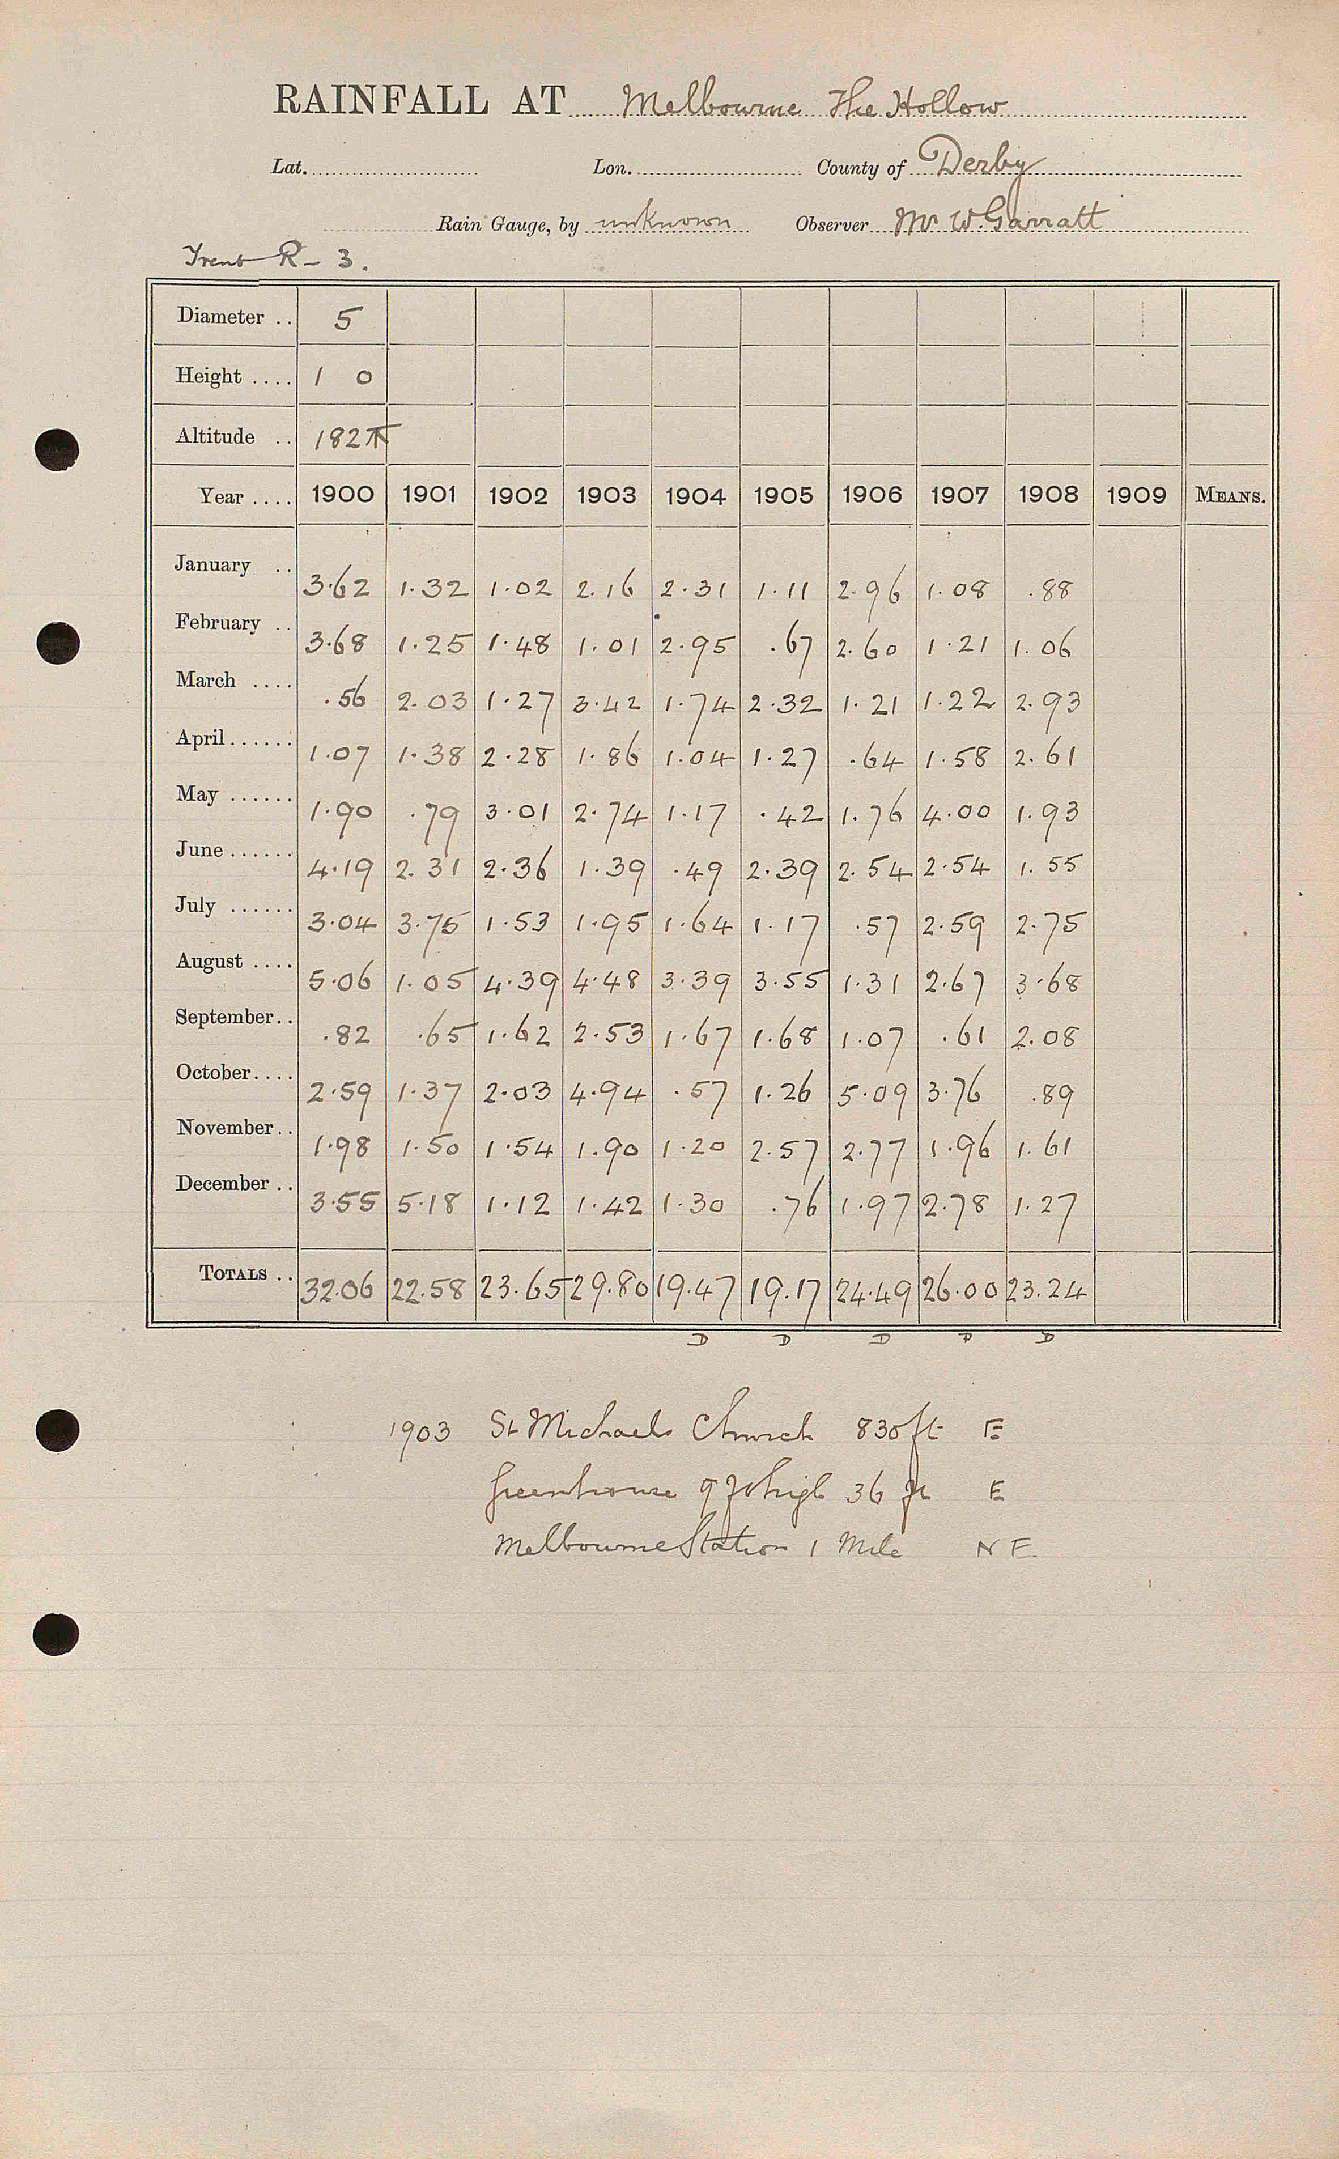 RAINFALL AT Melbourne The Hollow
Lat. Lon. County of Derby
Rain Gauge, by unknown Observer Mr W. Garratt
Trent R - 3.
Diameter .. 5
Height .... 1 0
Altitude .. 182
Year .... 1900 1901 1902 1903 1904 1905 1906 1907 1908 1909 MEANS.
January .. 3.62 1.32 1.02 2.16 2.31 1.11 2.96 1.08 .88
February .. 3.68 1.25 1.48 1.01 2.95 .67 2.60 1.21 1.06
March .... .56 2.03 1.27 3.42 1.74 2.32 1.21 1.22 2.93
April...... 1.07 1.38 2.28 1.86 1.04 1.27 .64 1.58 2.61
May ...... 1.90 .79 3.01 2.74 1.17 .42 1.76 4.00 1.93
June...... 4.19 2.31 2.36 1.39 .49 2.39 2.54 2.54 1.55
July ...... 3.04 3.75 1.53 1.95 1.64 1.17 .57 2.59 2.75
August .... 5.06 1.05 4.39 4.48 3.39 3.55 1.31 2.67 3.68
September.. .82 .65 1.62 2.53 1.67 1.68 1.07 .61 2.08
October.... 2.59 1.37 2.03 4.94 .57 1.26 5.09 3.76 .89
November.. 1.98 1.50 1.54 1.90 1.20 2.57 2.77 1.96 1.61
December .. 3.55 5.18 1.12 1.42 1.30 .76 1.97 2.78 1.27
TOTALS .. 32.06 22.58 23.65 29.80 19.47 19.17 24.49 26.00 23.24
D D D D D
1903 St Michaels Church 830 ft E
Greenhouse 9 ft high 36 ft E
Melbourne Station 1 Mile N E